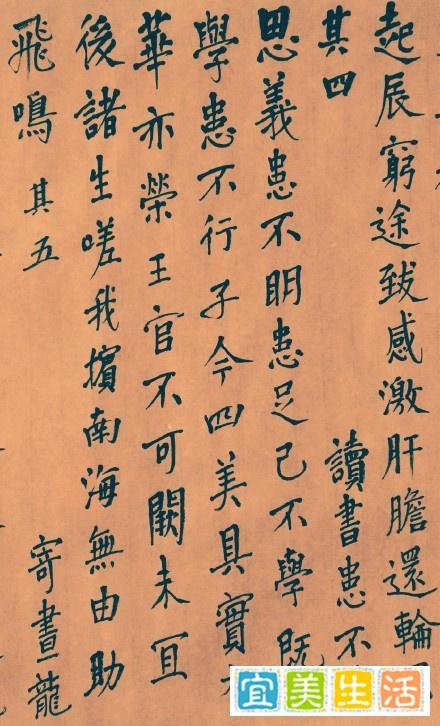 起辰窮途致感激肝膽還輪
其四 讀書患不
思義患不明患足己不學既
學患不行子今四美具實
華亦榮王官不可闕未宜
後諸生嗟我擯南海無由助
飛鳴 其五 寄書龍
宜美生活